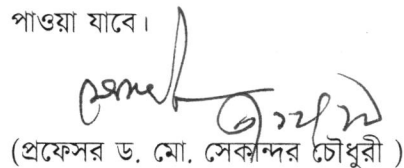 পাওয়া যাবে।
(প্রফেসর ড. মো. সেকান্দর চৌধুরী )